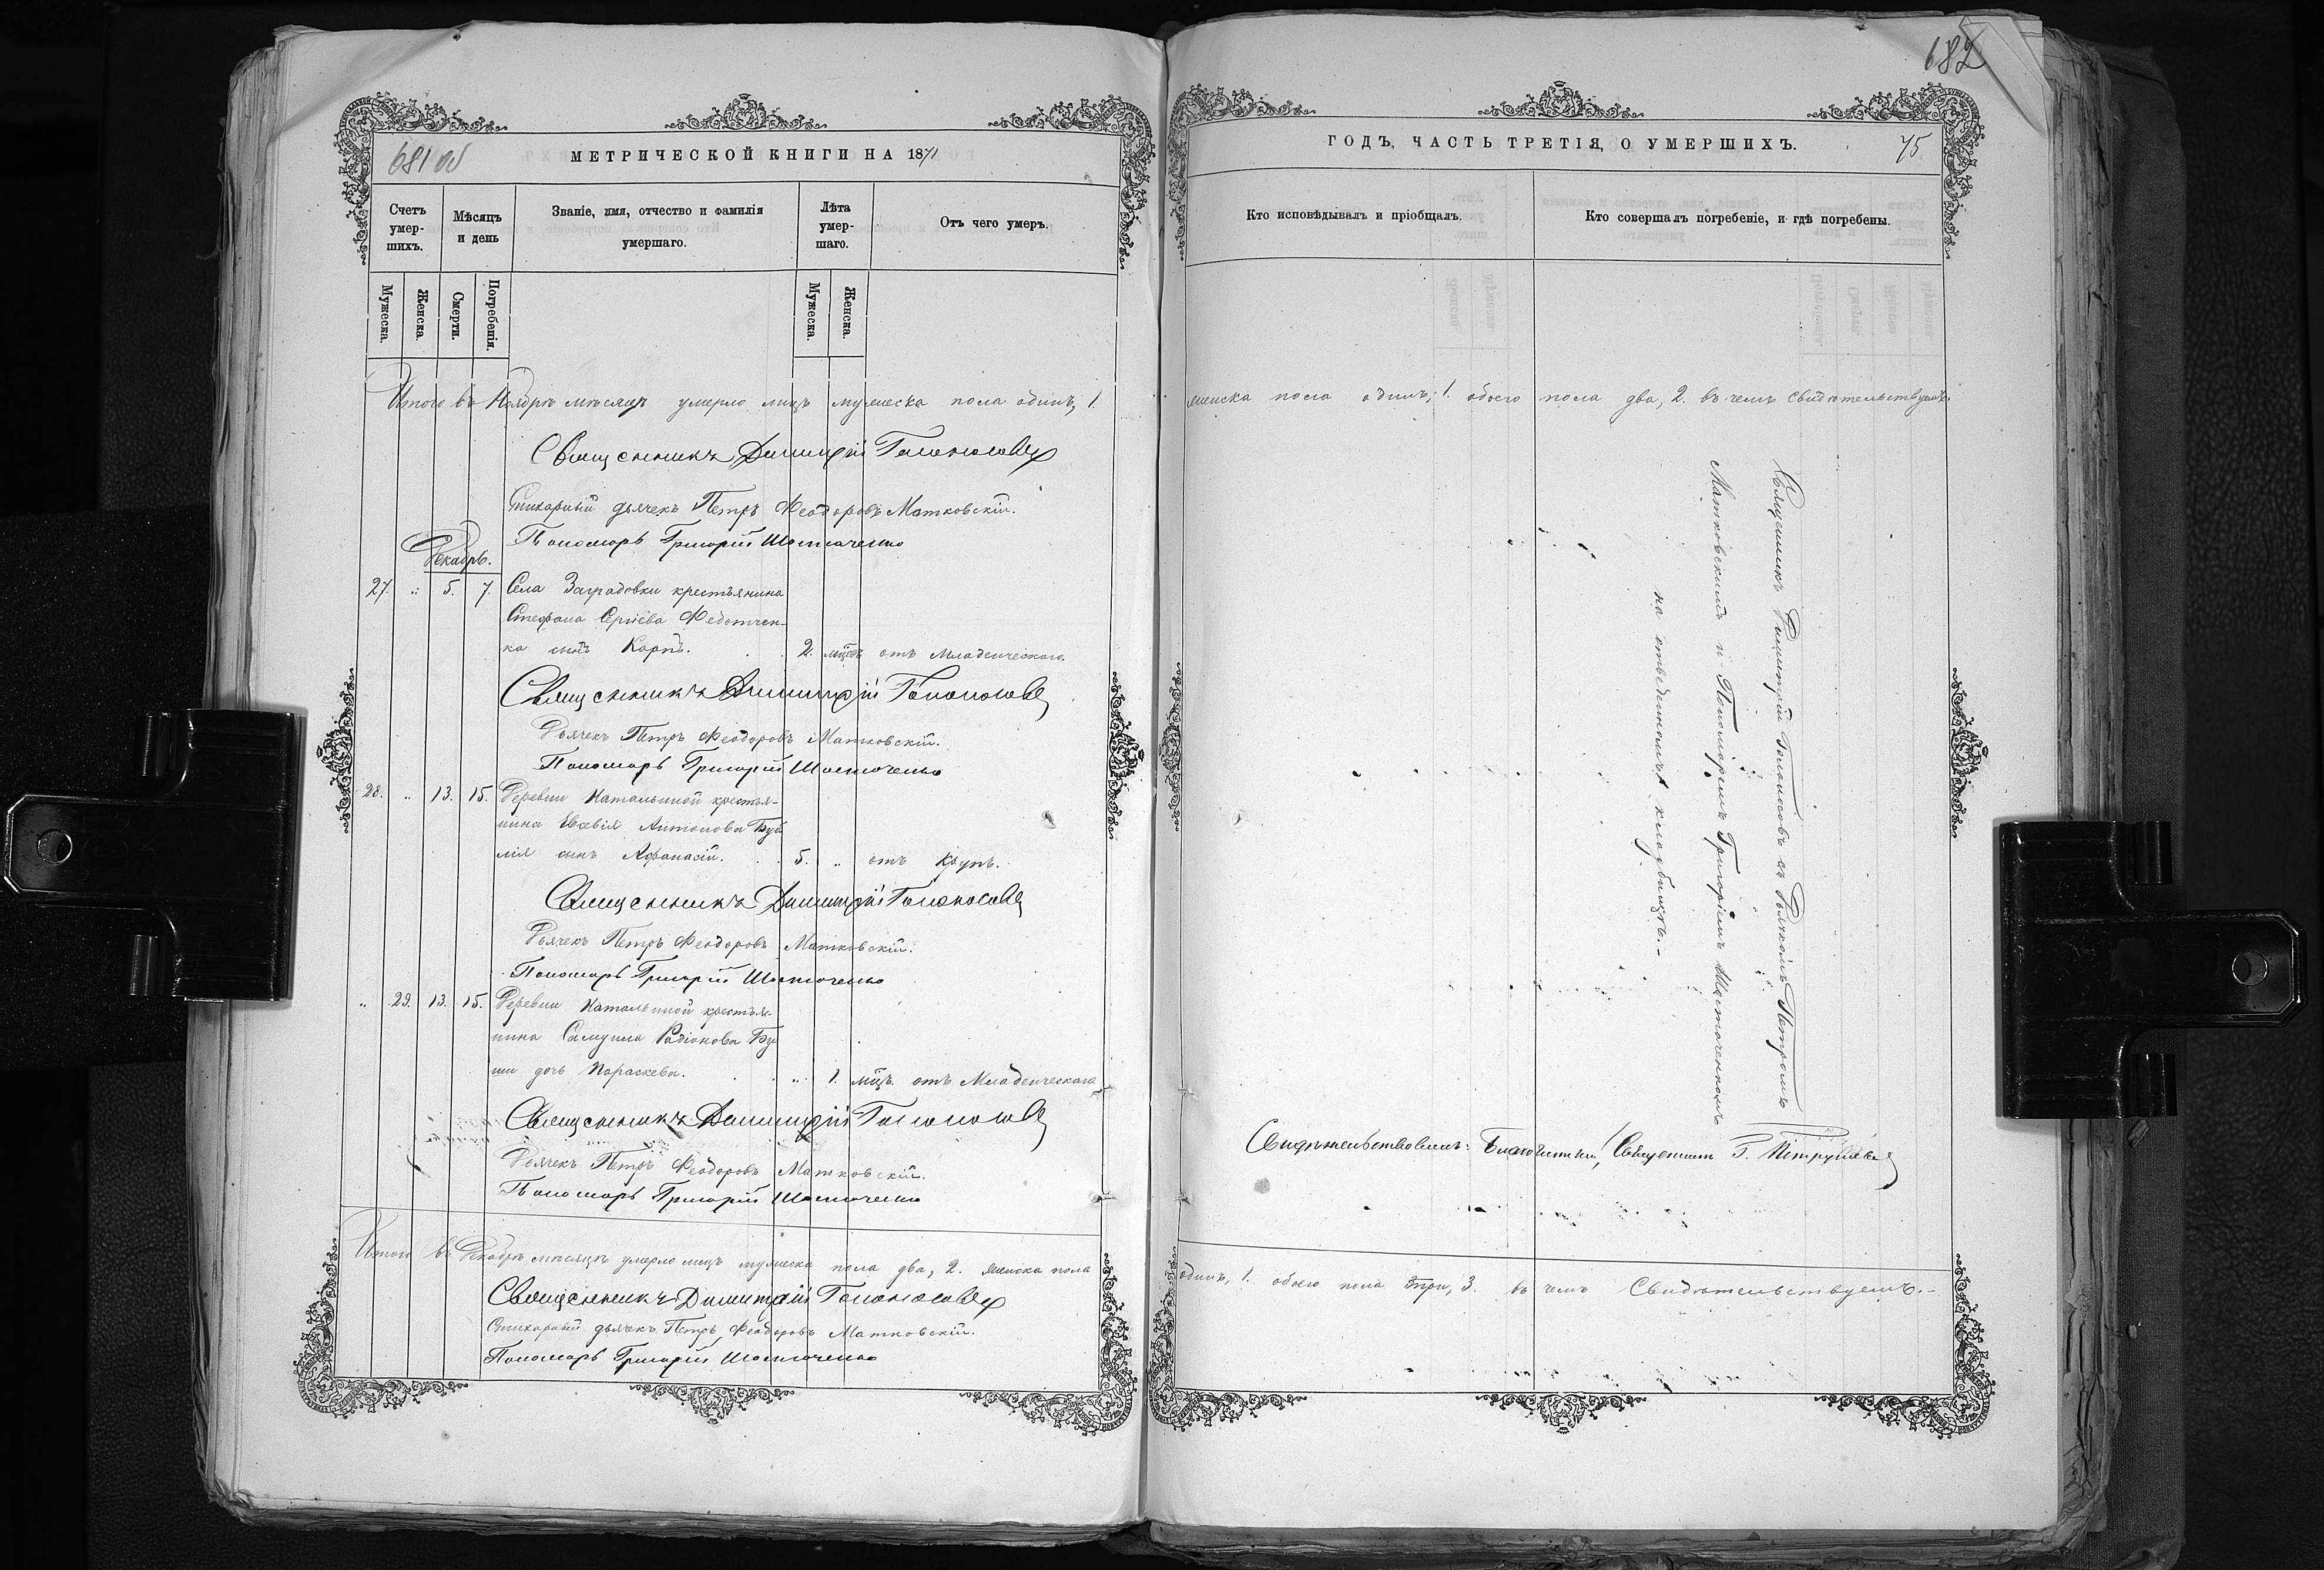 681 об
МЕТРИЧЕСКОЙ КНИГИ НА 1871
Счетъ умер-шихъ.
Мѣсяцъ и день
Званіе, имя, отчество и фамилія умершаго.
Лѣта умер-шаго.
Отъ чего умеръ.
Мужеска.
Женска.
Смерти.
Погребенія.
Мужеска.
Женска.
Итого въ Ноябрѣ мѣсяцѣ умерло лицъ мужеска пола одинъ, 1.
Священникъ Димитрій Голоносовъ
Стихарный дьячекъ Петръ Ѳеодоровъ Матковскій.
Пономарь Григорій Шостаченко
Декабрь.
27. " 5. 7. Села Заградовки крестьянина
Стефана Сергіева Федотчен-
ка сынъ Карпъ. 2. мѣсяц. отъ Младенческаго.
Священникъ Димитрій Голоносовъ
Дьячекъ Петръ Ѳеодоровъ Матковскій.
Пономарь Григорій Шостаченко
28. " 13. 15. Деревни Натальиной крестья-
нина Евсевія Антонова
сынъ Аѳанасій. 5. " отъ Крупъ.
Священникъ Димитрій Голоносовъ
Дьячекъ Петръ Ѳеодоровъ Матковскій.
Пономарь Григорій Шостаченко
" 29. 13. 15. Деревни Натальиной крестья-
нина Самуила Радіонова
дочь Параскева. " 1. мѣц. отъ Младенческаго
Священникъ Димитрій Голоносовъ
Дьячекъ Петръ Ѳеодоровъ Матковскій.
Пономарь Григорій Шостаченко
Итого въ Декабрѣ мѣсяцѣ умерло лицъ мужеска пола два, 2. женска пола
Священникъ Димитрій Голоносовъ
Стихарный дьячекъ Петръ Ѳеодоровъ Матковскій.
Пономарь Григорій Шостаченко
682
ГОДЪ, ЧАСТЬ ТРЕТІЯ, О УМЕРШИХЪ.
75
Кто исповѣдывалъ и пріобщалъ.
Кто совершалъ погребеніе, и гдѣ погребены.
женска пола одинъ, 1. обоего пола два, 2. въ чемъ свидѣтельствуемъ.
Священникъ Димитрій Голоносовъ съ Дьячкомъ Петромъ
Матковскимъ и Пономаремъ Григоріемъ Шостаченкомъ
на отведенномъ кладбищѣ.-
Свидѣтельствовалъ: Благочинный, Священникъ Г.
одинъ, 1. обоего пола три, 3. въ чемъ Свидѣтельствуемъ.-